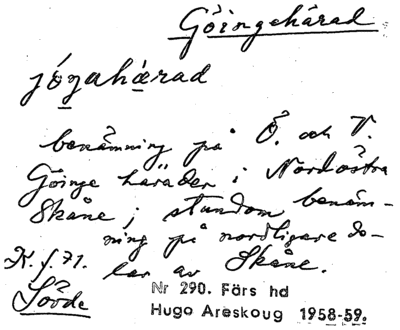 Göingehärad
jógahærad
benämning på Ö. och V.
Göinge härader i Nordöstra
Skåne; stundom benäm-
ning på nordligare de-
lar av Skåne.
K. f. 71.
Sövde
Nr 290. Färs hd
Hugo Areskoug 1958-59.